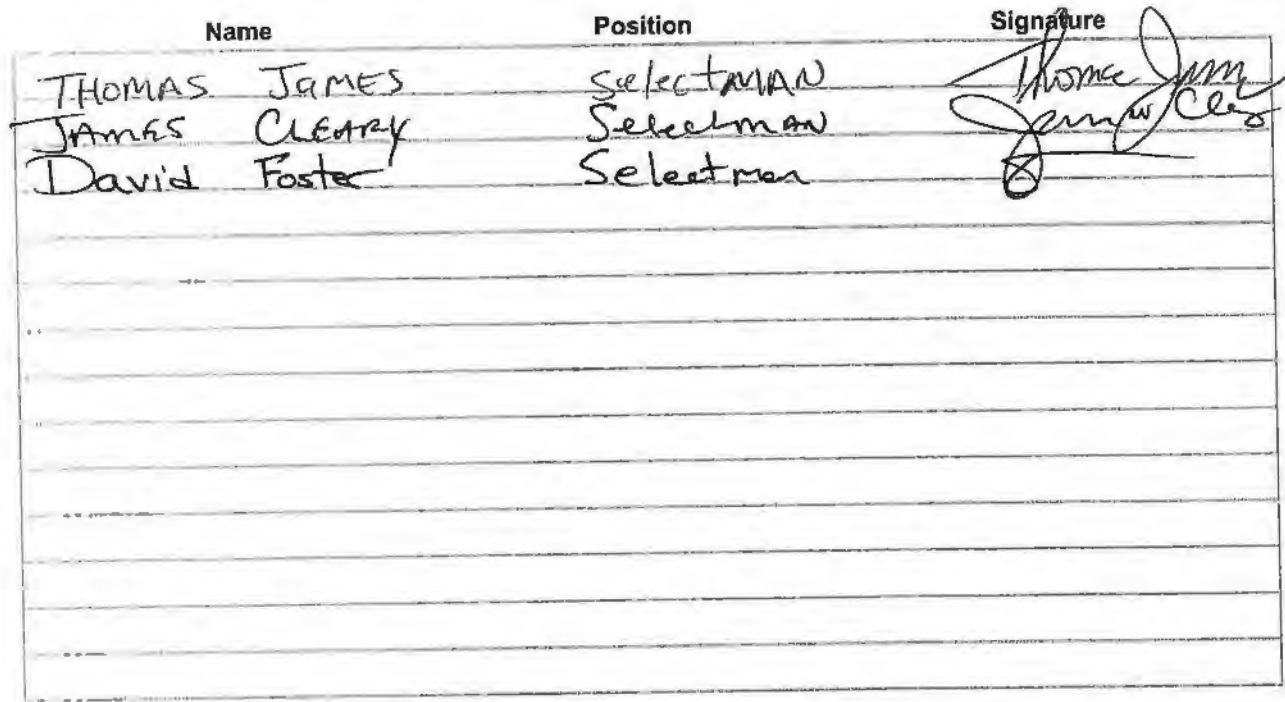 Name Position Signature
THOMAS JAMES SelectMAN Thomas
JAMES CLEARY SelectmAN
David Foster Selectman